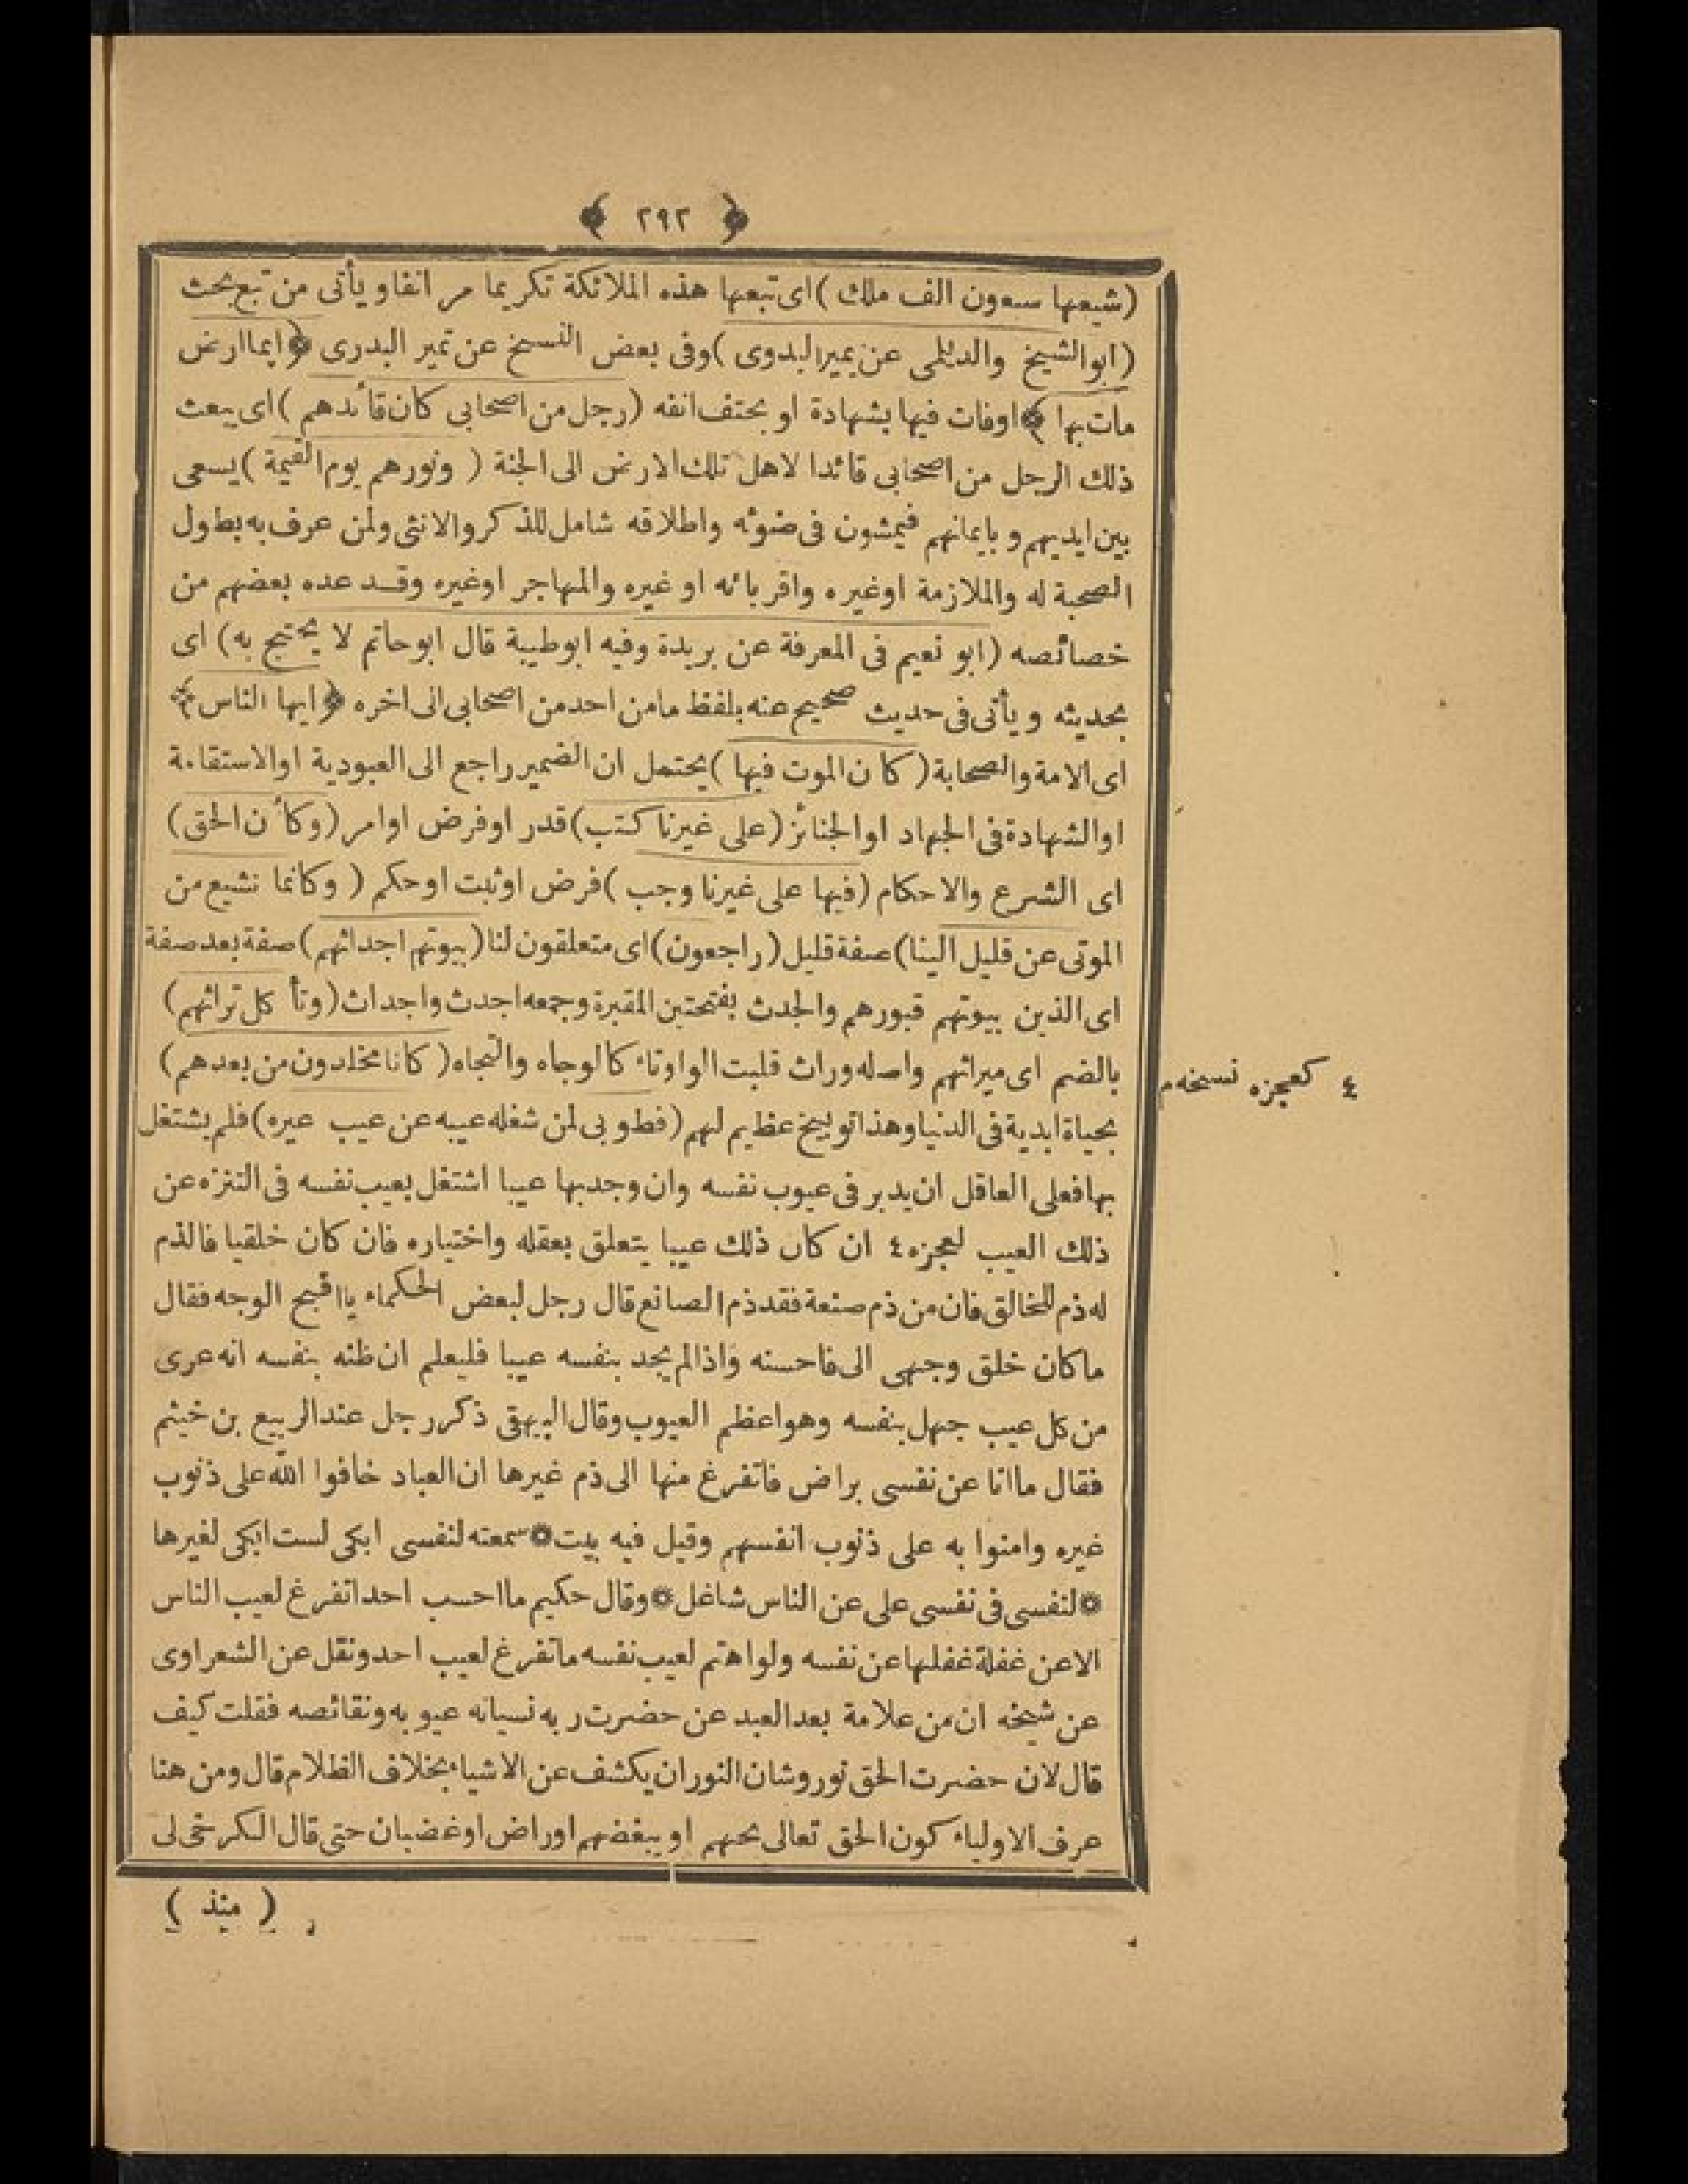 ﴿ ٢٩٢ ﴾
(شيعها سبعون الف ملك) اى تبعها هذه الملائكة تكريما مر انفا ويأتى من تبع بحث
(ابو الشيخ والديلمى عن يمير البدوى) وفى بعض النسخ عن تمير البدرى ﴿ ايما ارض
مات بها ﴾ اوفات فيها بشهادة او بحتف انفه (رجل من اصحابى كان قائدهم) اى يبعث
ذلك الرجل من اصحابى قائدا لاهل تلك الارض الى الجنة (ونورهم يوم القيمة) يسعى
بين ايديهم وبايمانهم فيمشون فى ضوئه واطلاقه شامل للذكر والانثى ولمن عرف به بطول
الصحبة له والملازمة اوغيره واقربائه او غيره والمهاجر اوغيره وقد عده بعضهم من
خصائصه (ابو نعيم فى المعرفة عن بريدة وفيه ابوطيبة قال ابوحاتم لا يحتج به) اى
بحديثه ويأتى فى حديث صحيح عنه بلفظ مامن احد من اصحابى الى اخره ﴿ ايها الناس ﴾
اى الامة والصحابة (كان الموت فيها) يحتمل ان الضمير راجع الى العبودية اوالاستقامة
او الشهادة فى الجهاد او الجنائز (على غيرنا كتب) قدر اوفرض اوامر (وكأن الحق)
اى الشرع والاحكام (فيها على غيرنا وجب) فرض اوثبت اوحكم (وكانما نشيع من
الموتى عن قليل الينا) صفة قليل (راجعون) اى متعلقون لنا (بيوتهم اجداثهم) صفة بعد صفة
اى الذين بيوتهم قبورهم والجدث بفتحتين المقبرة وجمعه اجدث واجداث (وتأكل تراثهم)
بالضم اى ميراثهم واصله وراث قلبت الواو تاء كالوجاه والتجاه (كانا مخلدون من بعدهم)
بحياة ابدية فى الدنيا وهذا توبيخ عظيم لهم (فطوبى لمن شغله عيبه عن عيب غيره) فلم يشتغل
بها فعلى العاقل ان يدبر فى عيوب نفسه وان وجد بها عيبا اشتغل بعيب نفسه فى التنزه عن
ذلك العيب لعجزه ٤ ان كان ذلك عيبا يتعلق بعقله واختياره فان كان خلقيا فالذم
له ذم للخالق فان من ذم صنعة فقد ذم الصانع قال رجل لبعض الحكماء يا اقبح الوجه فقال
ماكان خلق وجهى الى فاحسنه واذا لم يجد بنفسه عيبا فليعلم ان ظنه بنفسه انه عرى
من كل عيب جهل بنفسه وهو اعظم العيوب وقال البيهقى ذكر رجل عند الربيع بن خيثم
فقال ما انا عن نفسى براض فاتفرغ منها الى ذم غيرها ان العباد خافوا الله على ذنوب
غيره وامنوا به على ذنوب انفسهم وقيل فيه بيت * سمعته لنفسى ابكى لست ابكى لغيرها
* لنفسى فى نفسى على عن الناس شاغل * وقال حكيم ما احسب احدا تفرغ لعيب الناس
الا عن غفلة غفلها عن نفسه ولو اهتم لعيب نفسه ماتفرغ لعيب احد ونقل عن الشعراوى
عن شيخه ان من علامة بعد العبد عن حضرت ربه نسيانه عيوبه ونقائصه فقلت كيف
قال لان حضرت الحق نور وشان النور ان يكشف عن الاشياء بخلاف الظلام قال ومن هنا
عرف الاولياء كون الحق تعالى يحبهم او يبغضهم او راض او غضبان حتى قال الكرخى لى
(منذ)
٤ كعجزه نسخه م